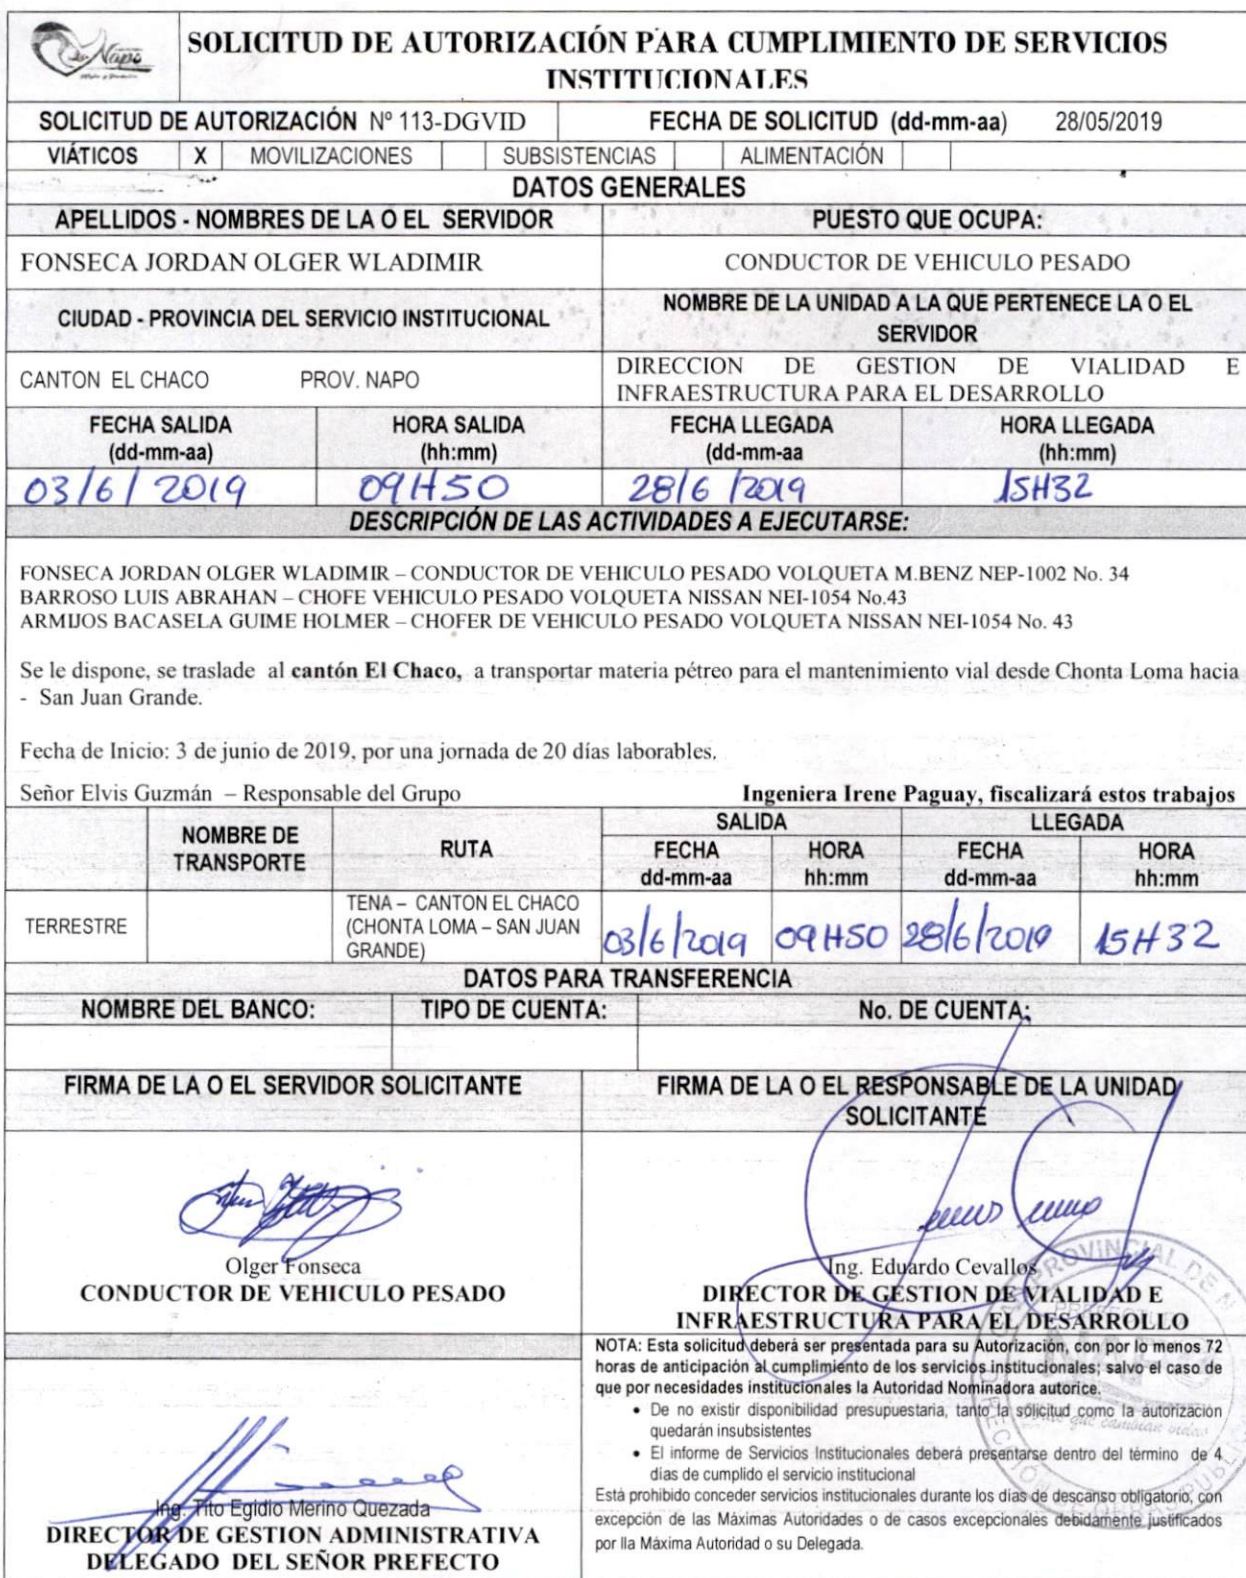 Napo
SOLICITUD DE AUTORIZACIÓN PARA CUMPLIMIENTO DE SERVICIOS
INSTITUCIONALES
SOLICITUD DE AUTORIZACIÓN Nº 113-DGVID FECHA DE SOLICITUD (dd-mm-aa) 28/05/2019
VIÁTICOS X MOVILIZACIONES SUBSISTENCIAS ALIMENTACIÓN
DATOS GENERALES
APELLIDOS - NOMBRES DE LA O EL SERVIDOR PUESTO QUE OCUPA:
FONSECA JORDAN OLGER WLADIMIR CONDUCTOR DE VEHICULO PESADO
CIUDAD - PROVINCIA DEL SERVICIO INSTITUCIONAL
NOMBRE DE LA UNIDAD A LA QUE PERTENECE LA O EL
SERVIDOR
CANTON EL CHACO PROV. NAPO
DIRECCION DE GESTION DE VIALIDAD E
INFRAESTRUCTURA PARA EL DESARROLLO
FECHA SALIDA HORA SALIDA FECHA LLEGADA HORA LLEGADA
(dd-mm-aa) (hh:mm) (dd-mm-aa (hh:mm)
03/6/2019 09H50 28/6/2019 15H32
DESCRIPCIÓN DE LAS ACTIVIDADES A EJECUTARSE:
FONSECA JORDAN OLGER WLADIMIR – CONDUCTOR DE VEHICULO PESADO VOLQUETA M.BENZ NEP-1002 No. 34
BARROSO LUIS ABRAHAN – CHOFE VEHICULO PESADO VOLQUETA NISSAN NEI-1054 No.43
ARMIJOS BACASELA GUIME HOLMER – CHOFER DE VEHICULO PESADO VOLQUETA NISSAN NEI-1054 No. 43
Se le dispone, se traslade al cantón El Chaco, a transportar materia pétreo para el mantenimiento vial desde Chonta Loma hacia
- San Juan Grande.
Fecha de Inicio: 3 de junio de 2019, por una jornada de 20 días laborables.
Señor Elvis Guzmán – Responsable del Grupo Ingeniera Irene Paguay, fiscalizará estos trabajos
SALIDA LLEGADA
NOMBRE DE
TRANSPORTE
RUTA
FECHA HORA FECHA HORA
dd-mm-aa hh:mm dd-mm-aa hh:mm
TERRESTRE
TENA – CANTON EL CHACO
(CHONTA LOMA – SAN JUAN
GRANDE)
03/6/2019 09H50 28/6/2019 15H32
DATOS PARA TRANSFERENCIA
NOMBRE DEL BANCO: TIPO DE CUENTA: No. DE CUENTA:
FIRMA DE LA O EL SERVIDOR SOLICITANTE
FIRMA DE LA O EL RESPONSABLE DE LA UNIDAD
SOLICITANTE
Olger Fonseca
CONDUCTOR DE VEHICULO PESADO
Ing. Eduardo Cevallos
DIRECTOR DE GESTION DE VIALIDAD E
INFRAESTRUCTURA PARA EL DESARROLLO
NOTA: Esta solicitud deberá ser presentada para su Autorización, con por lo menos 72
horas de anticipación al cumplimiento de los servicios institucionales; salvo el caso de
que por necesidades institucionales la Autoridad Nominadora autorice.
• De no existir disponibilidad presupuestaria, tanto la solicitud como la autorización
quedarán insubsistentes
• El informe de Servicios Institucionales deberá presentarse dentro del término de 4
días de cumplido el servicio institucional
Está prohibido conceder servicios institucionales durante los días de descanso obligatorio, con
excepción de las Máximas Autoridades o de casos excepcionales debidamente justificados
por lla Máxima Autoridad o su Delegada.
Ing. Tito Egidio Merino Quezada
DIRECTOR DE GESTION ADMINISTRATIVA
DELEGADO DEL SEÑOR PREFECTO